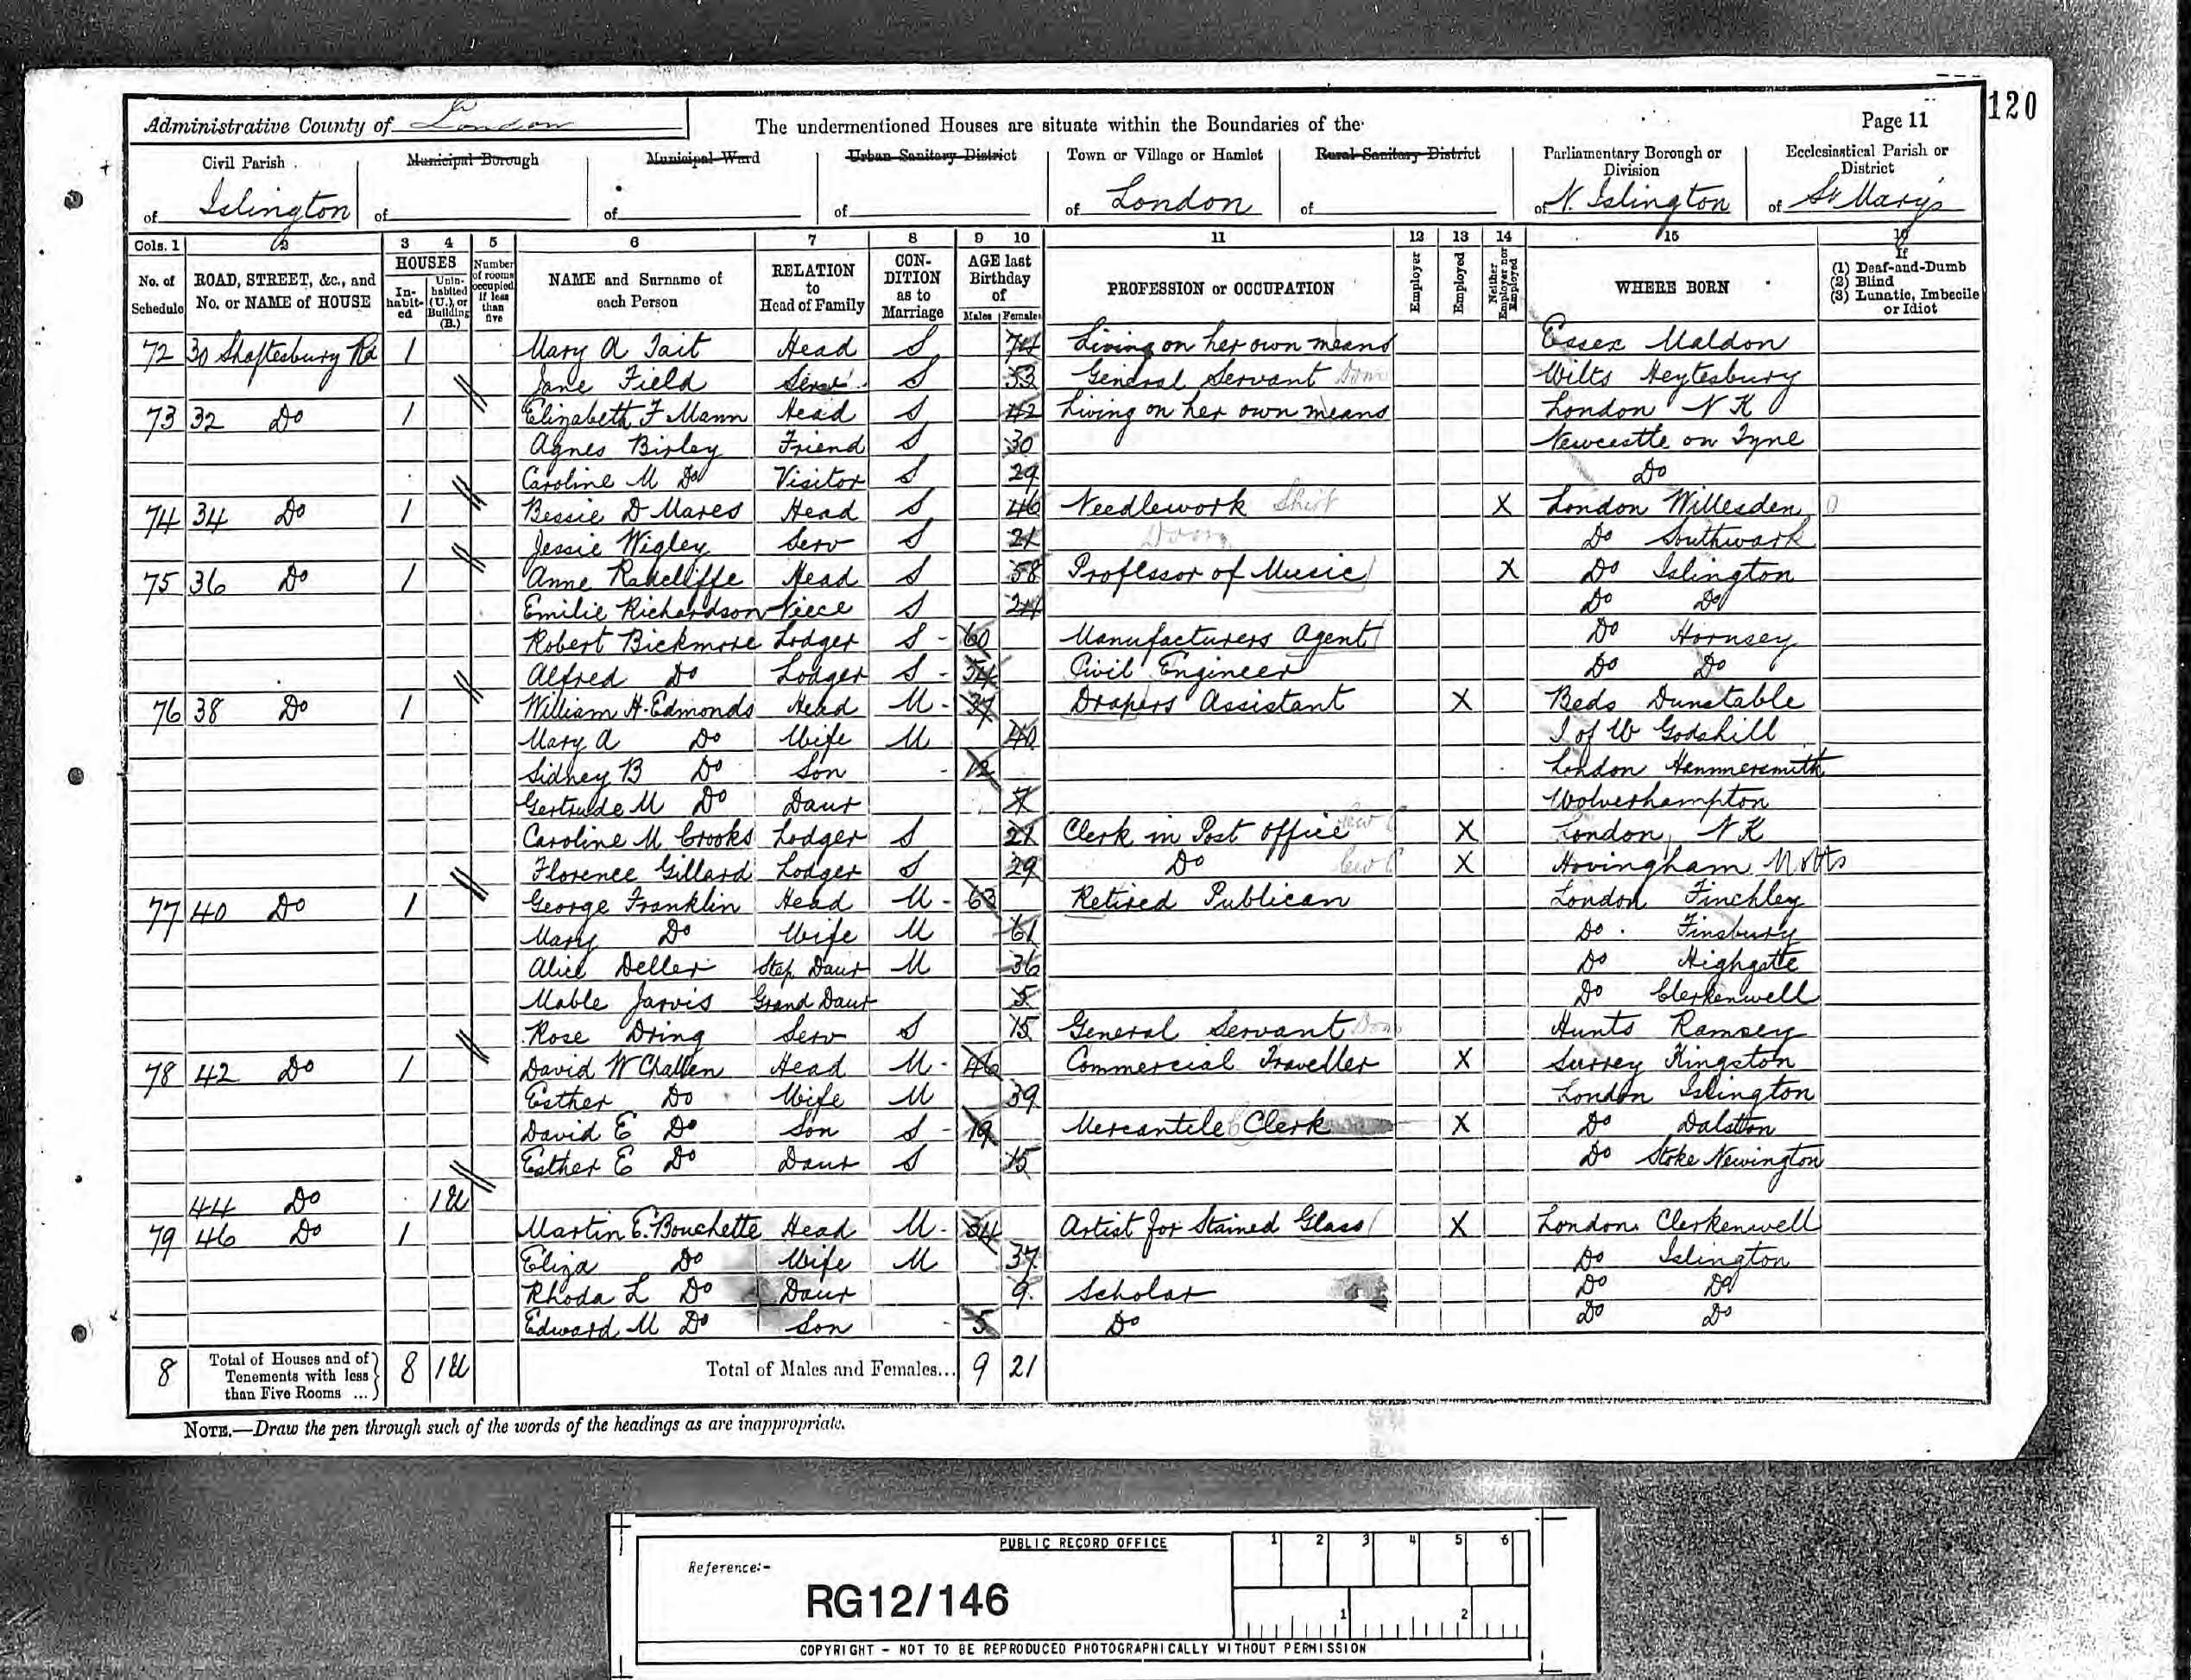 120
Administrative County of London
The undermentioned Houses are situate within the Boundaries of the
Page 11
Civil Parish of Islington
Municipal Borough of
Municipal Ward of
Urban Sanitary District of
Town or Village or Hamlet of London
Rural Sanitary District of
Parliamentary Borough or Division of N. Islington
Ecclesiastical Parish or District of St Mary's
Cols. 1 2 3 4 5 6 7 8 9 10 11 12 13 14 15 16
No. of Schedule
ROAD, STREET, &c., and No. or NAME of HOUSE
HOUSES
Inhabited
Uninhabited (U.), or Building (B.)
Number of rooms occupied if less than five
NAME and Surname of each Person
RELATION to Head of Family
CONDITION as to Marriage
AGE last Birthday of
Males Females
PROFESSION or OCCUPATION
Employer
Employed
Neither Employer nor Employed
WHERE BORN
If
(1) Deaf-and-Dumb
(2) Blind
(3) Lunatic, Imbecile or Idiot
72 30 Shaftesbury Rd 1 Mary A Tait Head S 74 Living on her own means Essex Maldon
Jane Field Serv S 53 General Servant Dom Wilts Heytesbury
73 32 Do 1 Elizabeth F Mann Head S 42 Living on her own means London N K
Agnes Birley Friend S 30 Newcastle on Tyne
Caroline M Do Visitor S 29 Do
74 34 Do 1 Bessie D Mares Head S 46 Needlework Shirt X London Willesden
Jessie Wigley Serv S 21 Dom Do Southwark
75 36 Do 1 Anne Radcliffe Head S 58 Professor of Music X Do Islington
Emilie Richardson Niece S 24 Do Do
Robert Bickmore Lodger S 60 Manufacturers Agent Do Hornsey
Alfred Do Lodger S 54 Civil Engineer Do Do
76 38 Do 1 William H. Edmonds Head M 37 Drapers Assistant X Beds Dunstable
Mary A Do Wife M 40 I of W Godshill
Sidney B Do Son 12 London Hammersmith
Gertrude M Do Daur 7 Wolverhampton
Caroline M Crooks Lodger S 21 Clerk in Post Office X London N K
Florence Gillard Lodger S 29 Do X Hovingham Notts
77 40 Do 1 George Franklin Head M 63 Retired Publican London Finchley
Mary Do Wife M 61 Do Finsbury
Alice Deller Step Daur M 36 Do Highgate
Mable Jarvis Grand Daur 5 Do Clerkenwell
Rose Dring Serv S 15 General Servant Dom Hunts Ramsey
78 42 Do 1 David W Challen Head M 46 Commercial Traveller X Surrey Kingston
Esther Do Wife M 39 London Islington
David E Do Son S 19 Mercantile Clerk X Do Dalston
Esther E Do Daur S 15 Do Stoke Newington
44 Do 1U
79 46 Do 1 Martin E. Bouchette Head M 34 Artist for Stained Glass X London Clerkenwell
Eliza Do Wife M 37 Do Islington
Rhoda L Do Daur 9 Scholar Do Do
Edward M Do Son 5 Do Do Do
8 Total of Houses and of Tenements with less than Five Rooms ... 8 1U Total of Males and Females... 9 21
NOTE.—Draw the pen through such of the words of the headings as are inappropriate.
PUBLIC RECORD OFFICE
1 2 3 4 5 6
Reference:-
RG12/146
1 2
COPYRIGHT - NOT TO BE REPRODUCED PHOTOGRAPHICALLY WITHOUT PERMISSION